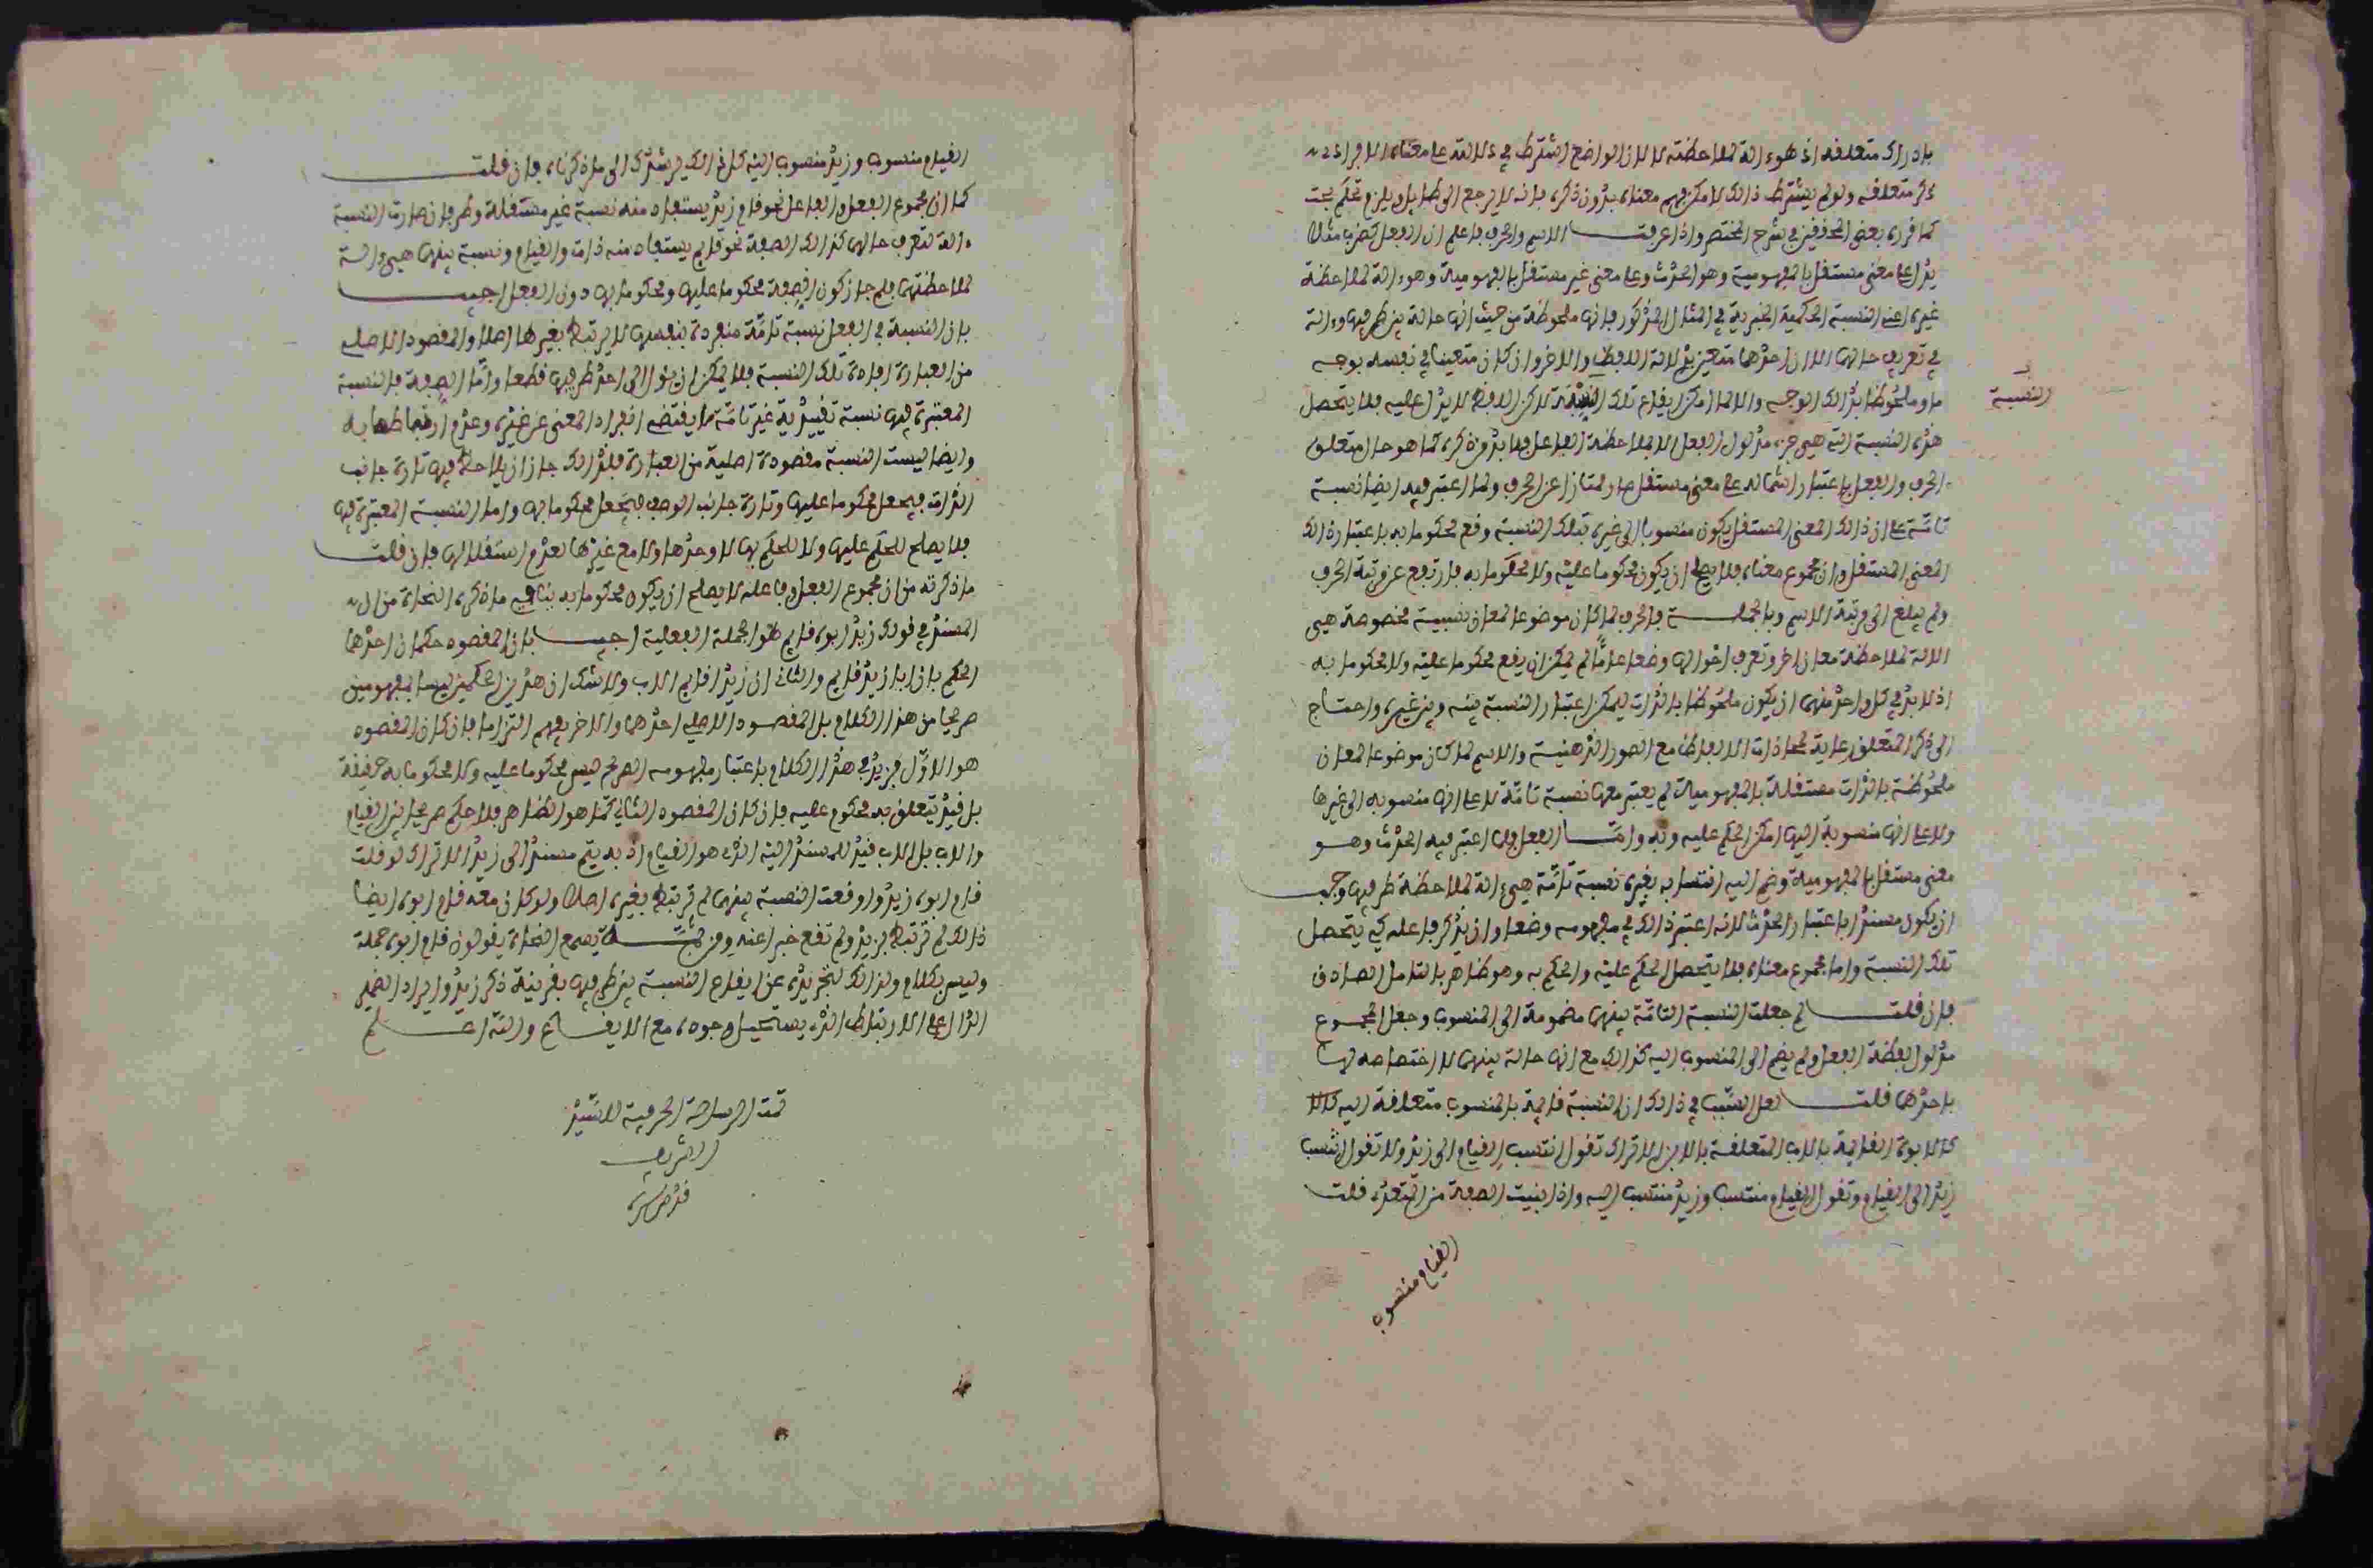 بادراك متعلقه اذ هو ءالة لملاحظته لا لان الواضع اشترط في دلالته على معناه الافرادي
ذكر متعلقه ولو لم يشترط ذالك لامكن فهم معناه بدون ذكره بانه لا يرجع الى طايل ويلزم تحكم بحت
كما قرره بعض المحققين في شرح المختصر واذا عرفت الاسم والحرف فاعلم ان الفعل كضرب مثلا
يدل على معنى مستقل بالمفهومية وهو الحدث وعلى معنى غير مستقل بالمفهومية وهو ءالة لملاحظة
غيره اعني النسبة الحكمية الخبرية في المثال المذكور فانها ملحوظة من حيث انها حالة بين طرفيها وءالة
في تعريف حالهما الا ان احدهما متعين بدلالة اللفظ والاخر وان كان متعينا في نفسه بوجه
ما وملحوظا بذالك الوجه والا لما امكن ايقاع تلك النسبة لاكن اللفظ لا يدل عليه فلا يتحصل
النسبة
هذه النسبة التي هي جزء مدلول الفعل الا بملاحظة الفاعل فلا بد من ذكره كما هو حال متعلق
الحرف والفعل باعتبار اشتماله على معنى مستقل صار ممتازا عن الحرف ولما اعتبر فيه ايضا نسبة
تامة على ان ذالك المعنى المستقل يكون منسوبا الى غيره بتلك النسبة وقع محكوما به باعتبار ذالك
المعنى المستقل وان مجموع معناه فلا يصلح ان يكون محكوما عليه ولا محكوما به فارتفع عن رتبة الحرف
ولم يبلغ الى مرتبة الاسم وبالجملة فالحرف لما كان موضوعا لمعان نسبية مخصوصة هي
الالة لملاحظة معان اخر وتعرف احوالها وضعا عاما لم يمكن ان يقع محكوما عليه ولا محكوما به
اذ لا بد في كل واحد منهما ان يكون ملحوظا بالذات ليمكن اعتبار النسبة بينه وبين غيره واحتاج
الى ذكر المتعلق رعاية لمحاذات الالفاظ مع الصور الذهنية والاسم لما كان موضوعا لمعان
ملحوظة بالذات مستقلة بالمفهومية لم يعتبر معها نسبة تامة لا على انها منسوبة الى غيرها
ولا على انها منسوبة اليها امكن الحكم عليه وبه واما الفعل فلما اعتبر فيه الحدث وهو
معنى مستقل بالمفهومية وضم اليه انتسابه بغيره نسبة تامة هي ءالة لملاحظة طرفيها وجب
ان يكون مسندا باعتبار الحدث لانه اعتبر ذالك في مفهومه وضعا وان يذكر فاعله كي يتحصل
تلك النسبة واما مجموع معناه فلا يتحصل الحكم عليه والحكم به وهو ظاهر بالتامل الصادق
فان قلت لم جعلت النسبة التامة بينهما مضمومة الى المنسوب وجعل المجموع
مدلول لفظة الفعل ولم يضم الى المنسوب اليه كذالك مع انها حالة بينهما لا اختصاص لها
باحدهما قلت لعل السبب في ذالك ان النسبة قايمة بالمنسوب متعلقة اليه كالا
كالابوة القايمة بالاب المتعلقة بالابن الا تراك تقول انتسب القيام الى زيد ولا تقول انتسب
زيد الى القيام وتقول القيام منتسب وزيد منتسب اليه واذا بنيت الصفة من المتعدي قلت
القيام منسوب
القيام منسوب وزيد منسوب اليه كل ذالك يرشدك الى ما ذكرناه فان قلت
كما ان مجموع الفعل والفاعل نحو قام زيد يستفاد منه نسبة غير مستقلة وطرفان صارت النسبة
ءالة لتعرف حالهما كذالك الصفة نحو قايم يستفاد منه ذات والقيام ونسبة بينهما هي ءالة
لملاحظتهما فلم جاز كون الصفة محكوما عليها ومحكوما بها دون الفعل اجيب
بان النسبة في الفعل نسبة تامة منفردة بنفسها لا يرتبط بغيرها اصلا والمقصود الاصلي
من العبارة افادة تلك النسبة فلا يمكن ان يئول الى احد طرفيها قطعا واما الصفة فالنسبة
المعتبرة فيها نسبة تقييدية غير تامة لا يقتضي افراد المعنى عن غيره وعدم ارتباطها به
وايضا ليست النسبة مقصودة اصلية من العبارة فلذالك جاز ان يلاحظ فيها تارة جانب
الذات فيجعل محكوما عليها وتارة جانب الوصف فيجعل محكوما بها واما النسبة المعتبرة فيها
فلا يصلح للحكم عليها ولا للحكم بها لا وحدها ولا مع غيرها لعدم استقلالها فان قلت
ما ذكرته من ان مجموع الفعل وفاعله لا يصلح ان يكون محكوما به ينافيه ما ذكره النحاة من ان
المسند في قولك زيد ابوه قايم هو الجملة الفعلية اجيب بان المقصود حكمان احدهما
الحكم بان ابا زيد قايم والثاني ان زيدا قايم الاب ولا شك ان هذين الحكمين ليسا بمفهومين
صريحا من هذا الكلام بل المقصود الاصلي احدهما والاخر يفهم التزاما فان كان المقصود
هو الاول فزيد في هذا الكلام باعتبار مفهومه الصريح ليس محكوما عليه ولا محكوما به حقيقة
بل قيد يتعلق به محكوم عليه فان كان المقصود الثاني كما هو الظاهر فلا حكم صريحا بين القيام
والاب بل الاب قيد للمسند اليه الذي هو القيام اذ به يتم مسندا الى زيد الا تراك لو قلت
قام ابوه زيد واوقعت النسبة بينهما لم ترتبط بغيره اصلا ولو كان معه قام ابوه ايضا
ذالك لم ترتبط بزيد ولم تقع خبرا عنه ومن ثمت يسمع النحاة يقولون قام ابوه جملة
وليس بكلام وذالك لتجريده عن ايقاع النسبة بين طرفيها بقرينة ذكر زيد وايراد الضمير
الدال على الارتباط الذي يستحيل وجوده مع الايقاع والله اعلم
تمت الرسالة الحرفية للسيد
الشريف
قدس سره